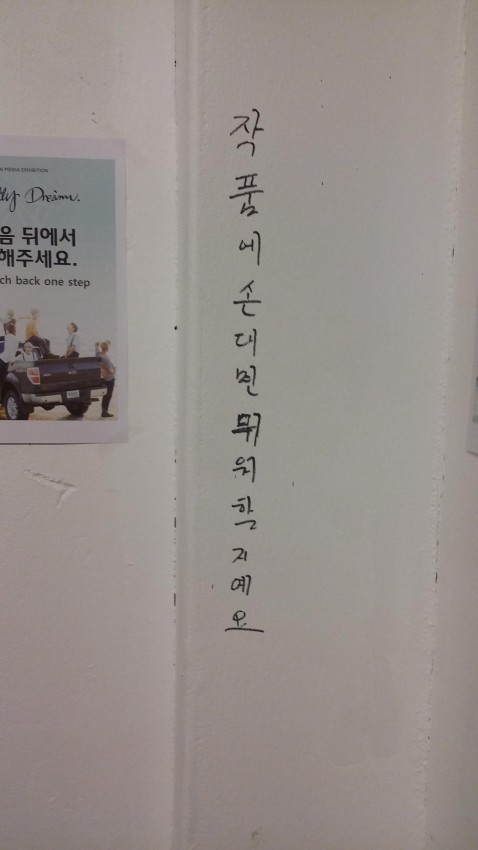 N MEDIA EXHIBITION
tly Dream.
음 뒤에서
해주세요.
ch back one step
작품에손대면뮈위학지예오